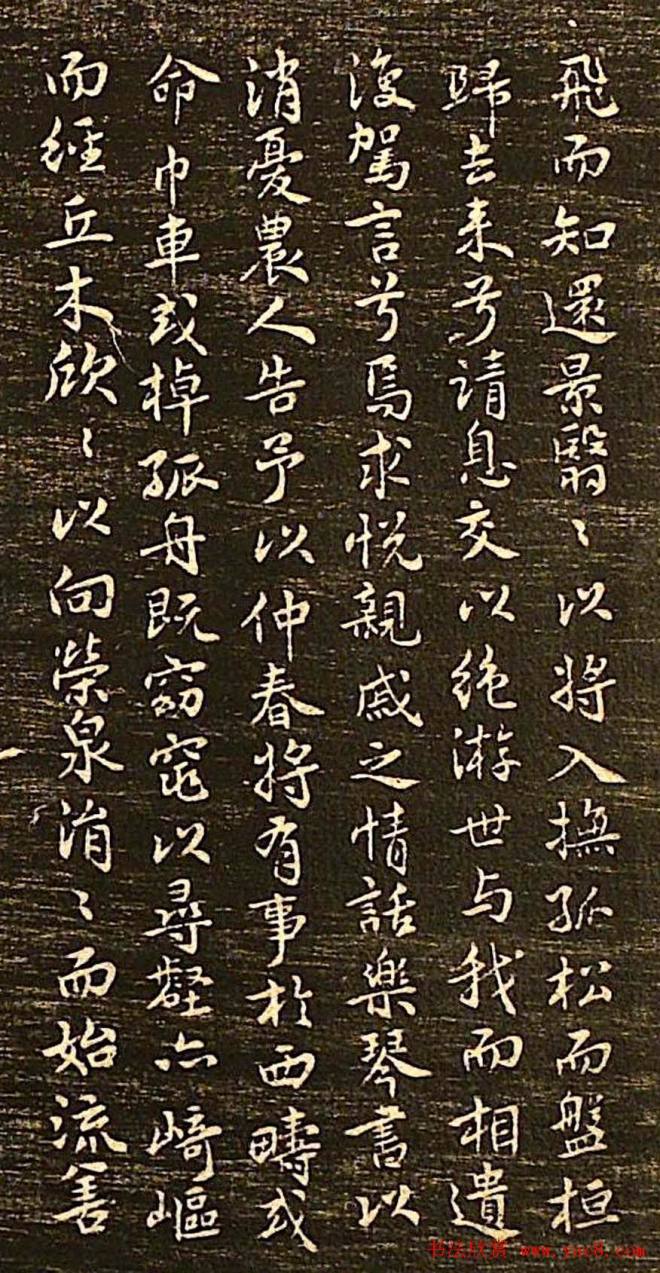 飛而知還景翳〻以將入撫孤松而盤桓
歸去来兮請息交以絶游世与我而相遺
復駕言兮焉求悦親戚之情話樂琴書以
消憂農人告予以仲春将有事於西疇或
命巾車或棹孤舟既窈窕以尋壑亦崎嶇
而經丘木欣〻以向榮泉涓〻而始流善
书法欣赏 www.yac8.com